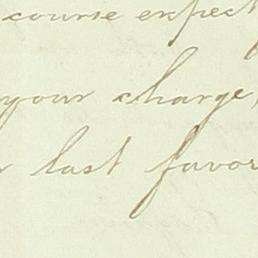 course expect
your charge,
last favor